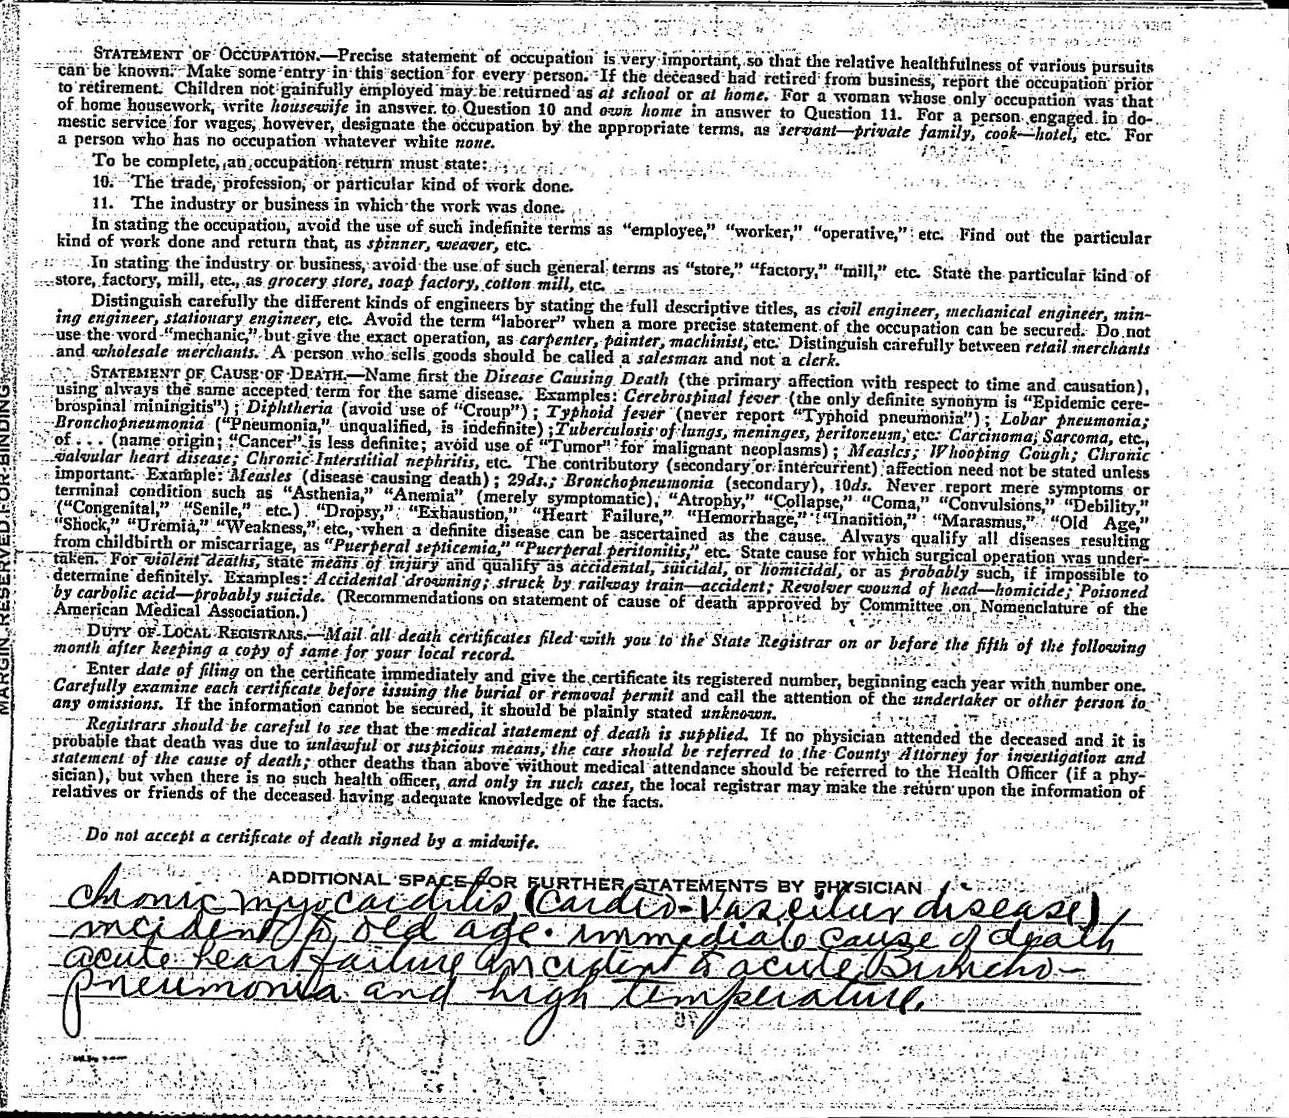 STATEMENT OF OCCUPATION.—Precise statement of occupation is very important, so that the relative healthfulness of various pursuits
can be known. Make some entry in this section for every person. If the deceased had retired from business, report the occupation prior
to retirement. Children not gainfully employed may be returned as at school or at home. For a woman whose only occupation was that
of home housework, write housewife in answer to Question 10 and own home in answer to Question 11. For a person engaged in do-
mestic service for wages, however, designate the occupation by the appropriate terms, as servant—private family, cook—hotel, etc. For
a person who has no occupation whatever white none.
To be complete, an occupation return must state:
10. The trade, profession, or particular kind of work done.
11. The industry or business in which the work was done.
In stating the occupation, avoid the use of such indefinite terms as “employee,” “worker,” “operative,” etc. Find out the particular
kind of work done and return that, as spinner, weaver, etc.
In stating the industry or business, avoid the use of such general terms as “store,” “factory,” “mill,” etc. State the particular kind of
store, factory, mill, etc., as grocery store, soap factory, cotton mill, etc.
Distinguish carefully the different kinds of engineers by stating the full descriptive titles, as civil engineer, mechanical engineer, min-
ing engineer, stationary engineer, etc. Avoid the term “laborer” when a more precise statement of the occupation can be secured. Do not
use the word “mechanic,” but give the exact operation, as carpenter, painter, machinist, etc. Distinguish carefully between retail merchants
and wholesale merchants. A person who sells goods should be called a salesman and not a clerk.
STATEMENT OF CAUSE OF DEATH.—Name first the Disease Causing Death (the primary affection with respect to time and causation),
using always the same accepted term for the same disease. Examples: Cerebrospinal fever (the only definite synonym is “Epidemic cere-
brospinal miningitis”); Diphtheria (avoid use of “Croup”); Typhoid fever (never report “Typhoid pneumonia”); Lobar pneumonia;
Bronchopneumonia (“Pneumonia,” unqualified, is indefinite); Tuberculosis of lungs, meninges, peritoneum, etc. Carcinoma, Sarcoma, etc.,
of . . . (name origin; “Cancer” is less definite; avoid use of “Tumor” for malignant neoplasms); Measles; Whooping Cough; Chronic
valvular heart disease; Chronic Interstitial nephritis, etc. The contributory (secondary or intercurrent) affection need not be stated unless
important. Example: Measles (disease causing death); 29ds.; Bronchopneumonia (secondary), 10ds. Never report mere symptoms or
terminal condition such as “Asthenia,” “Anemia” (merely symptomatic), “Atrophy,” “Collapse,” “Coma,” “Convulsions,” “Debility,”
(“Congenital,” “Senile,” etc.) “Dropsy,” “Exhaustion,” “Heart Failure,” “Hemorrhage,” “Inanition,” “Marasmus,” “Old Age,”
“Shock,” “Uremia,” “Weakness,” etc., when a definite disease can be ascertained as the cause. Always qualify all diseases resulting
from childbirth or miscarriage, as “Puerperal septicemia,” “Puerperal peritonitis,” etc. State cause for which surgical operation was under-
taken. For violent deaths, state means of injury and qualify as accidental, suicidal, or homicidal, or as probably such, if impossible to
determine definitely. Examples: Accidental drowning; struck by railway train—accident; Revolver wound of head—homicide; Poisoned
by carbolic acid—probably suicide. (Recommendations on statement of cause of death approved by Committee on Nomenclature of the
American Medical Association.)
DUTY OF LOCAL REGISTRARS.—Mail all death certificates filed with you to the State Registrar on or before the fifth of the following
month after keeping a copy of same for your local record.
Enter date of filing on the certificate immediately and give the certificate its registered number, beginning each year with number one.
Carefully examine each certificate before issuing the burial or removal permit and call the attention of the undertaker or other person to
any omissions. If the information cannot be secured, it should be plainly stated unknown.
Registrars should be careful to see that the medical statement of death is supplied. If no physician attended the deceased and it is
probable that death was due to unlawful or suspicious means, the case should be referred to the County Attorney for investigation and
statement of the cause of death; other deaths than above without medical attendance should be referred to the Health Officer (if a phy-
sician), but when there is no such health officer, and only in such cases, the local registrar may make the return upon the information of
relatives or friends of the deceased having adequate knowledge of the facts.
Do not accept a certificate of death signed by a midwife.
ADDITIONAL SPACE FOR FURTHER STATEMENTS BY PHYSICIAN
chronic myocarditis (Cardio-Vascular disease),
incident to old age. immediate cause of death
acute heart failure incident to acute Broncho-
pneumonia and high temperature.
MARGIN RESERVED FOR BINDING